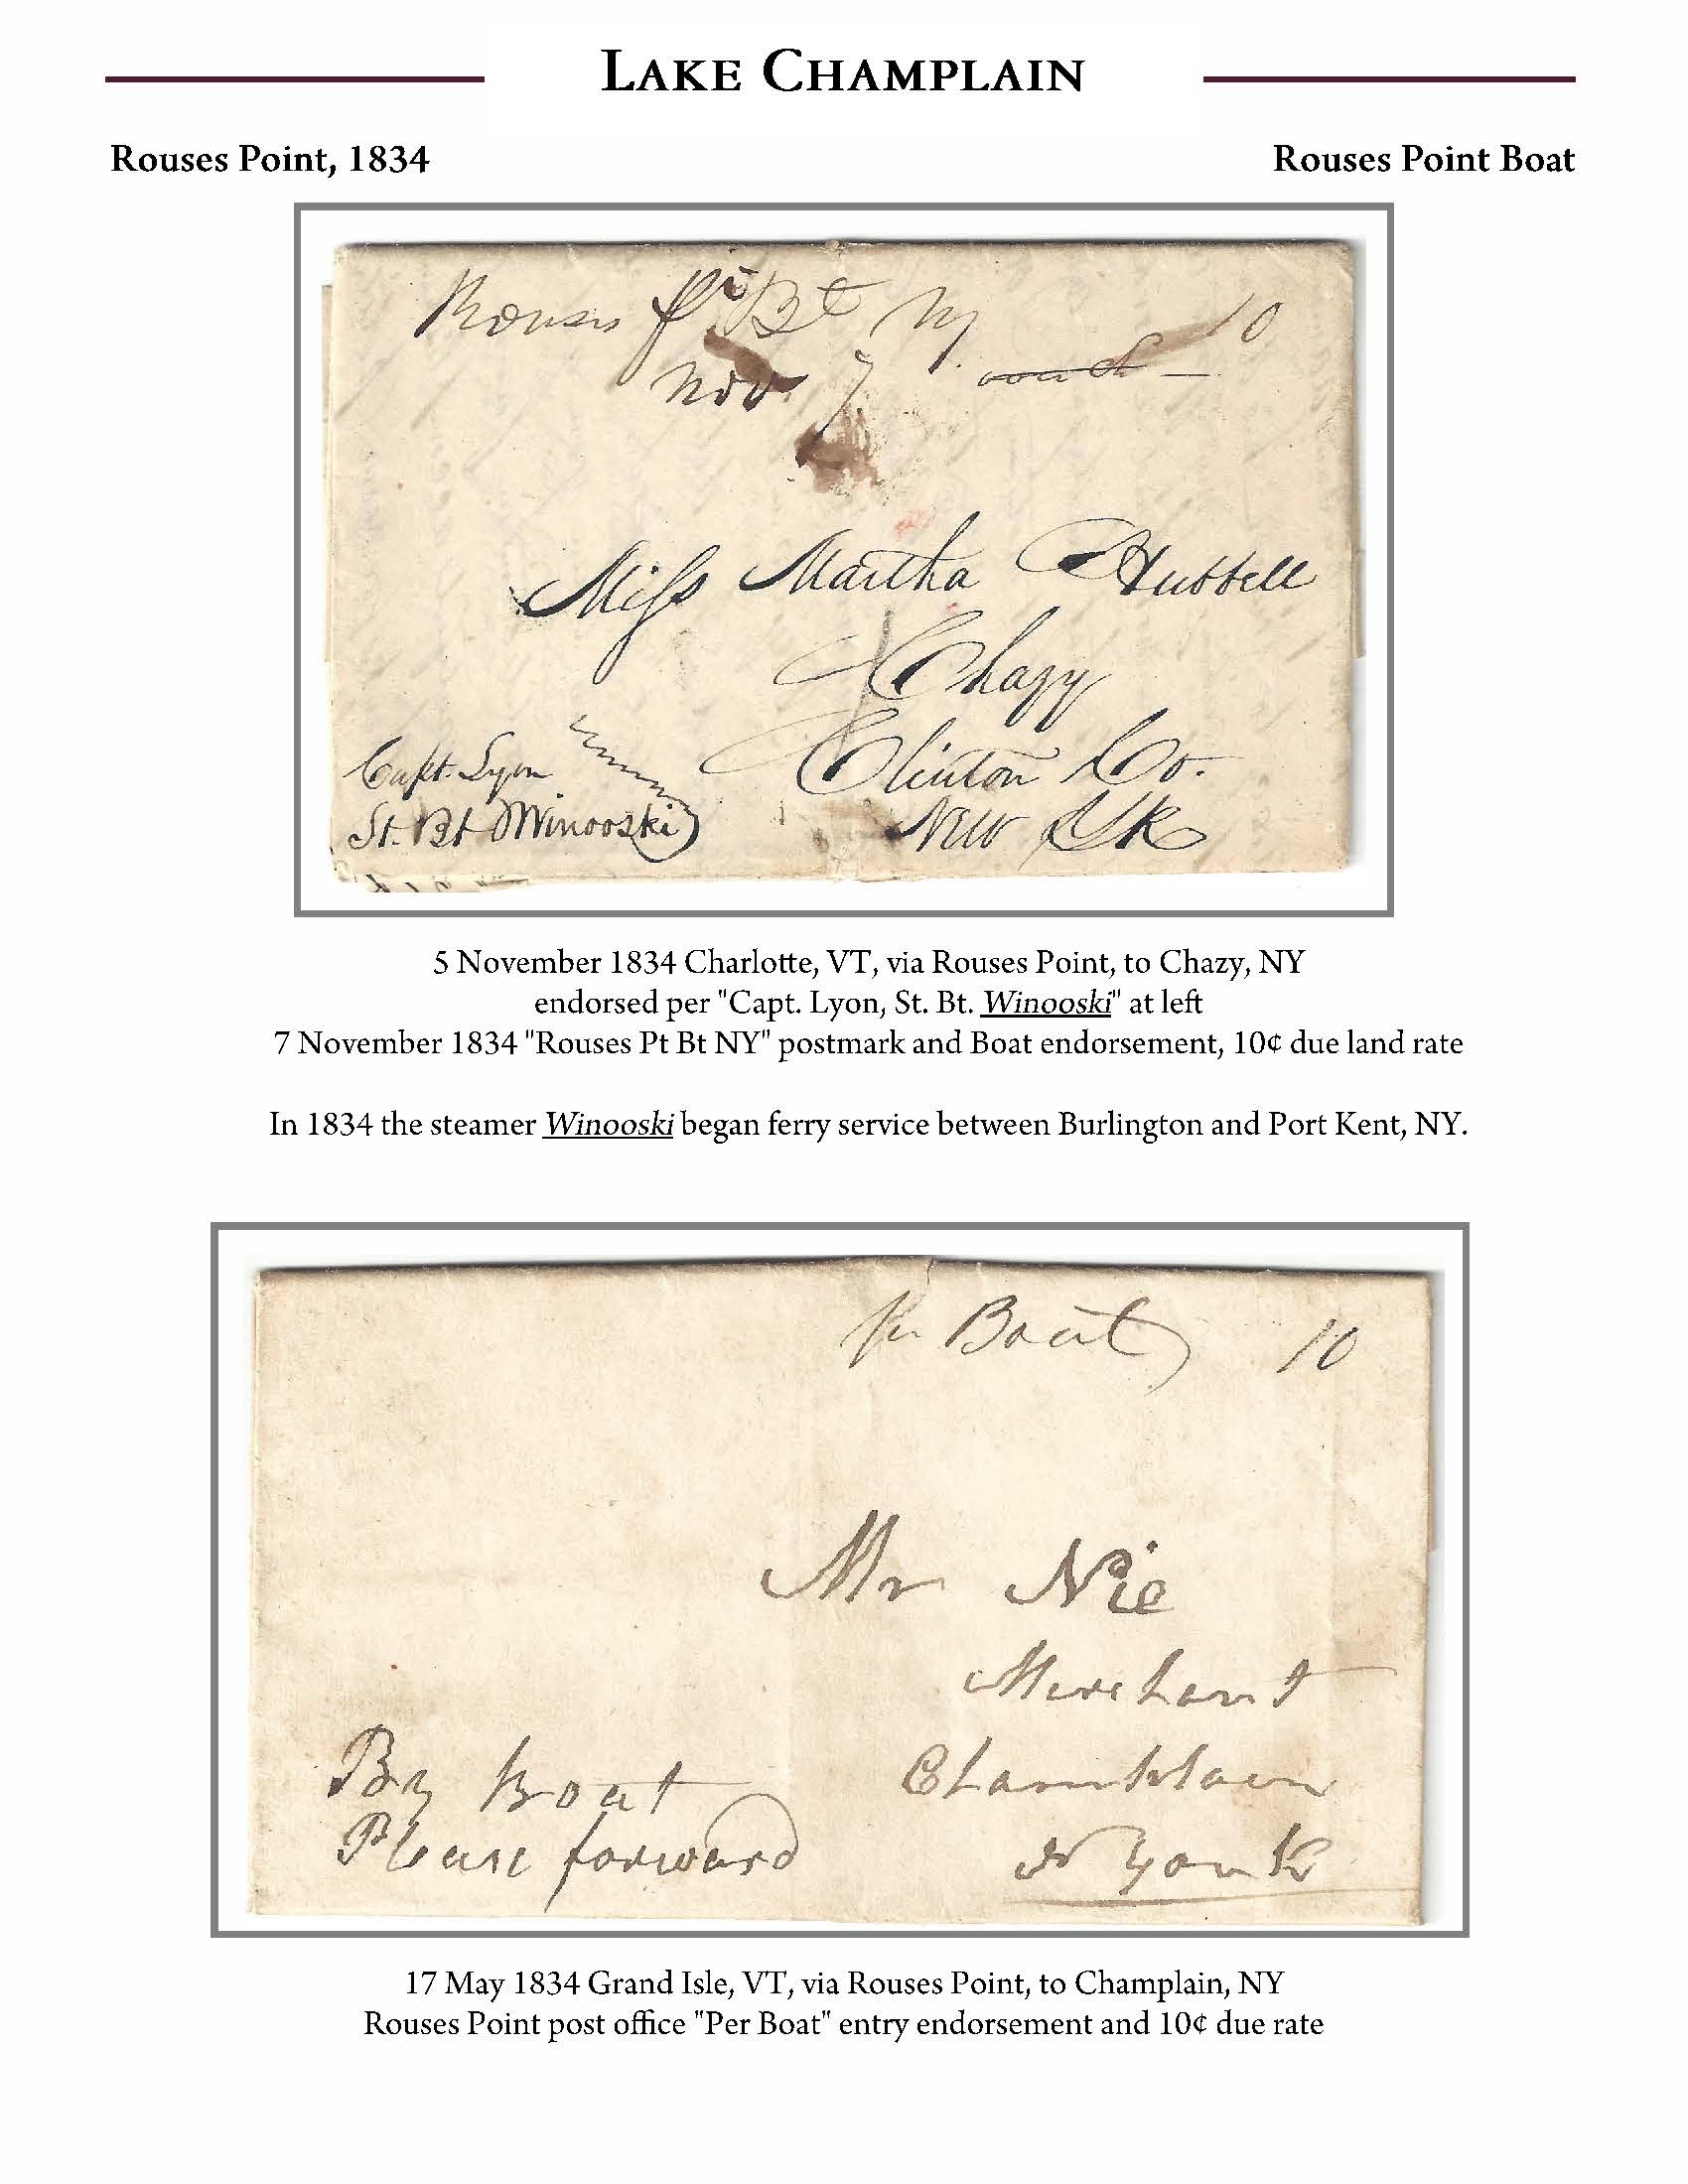 LAKE CHAMPLAIN
Rouses Point, 1834
Rouses Point Boat
Rouses Pt Bt NY 10
Nov. 7
Miss Martha Hubbell
Chazy
Clinton Co.
New Yk
Capt. Lyon
St. Bt Winooski
5 November 1834 Charlotte, VT, via Rouses Point, to Chazy, NY
endorsed per "Capt. Lyon, St. Bt. Winooski" at left
7 November 1834 "Rouses Pt Bt NY" postmark and Boat endorsement, 10¢ due land rate
In 1834 the steamer Winooski began ferry service between Burlington and Port Kent, NY.
Per Boat 10
Mr Nie
Merchant
Champlain
N York
By Boat
Please forward
17 May 1834 Grand Isle, VT, via Rouses Point, to Champlain, NY
Rouses Point post office "Per Boat" entry endorsement and 10¢ due rate